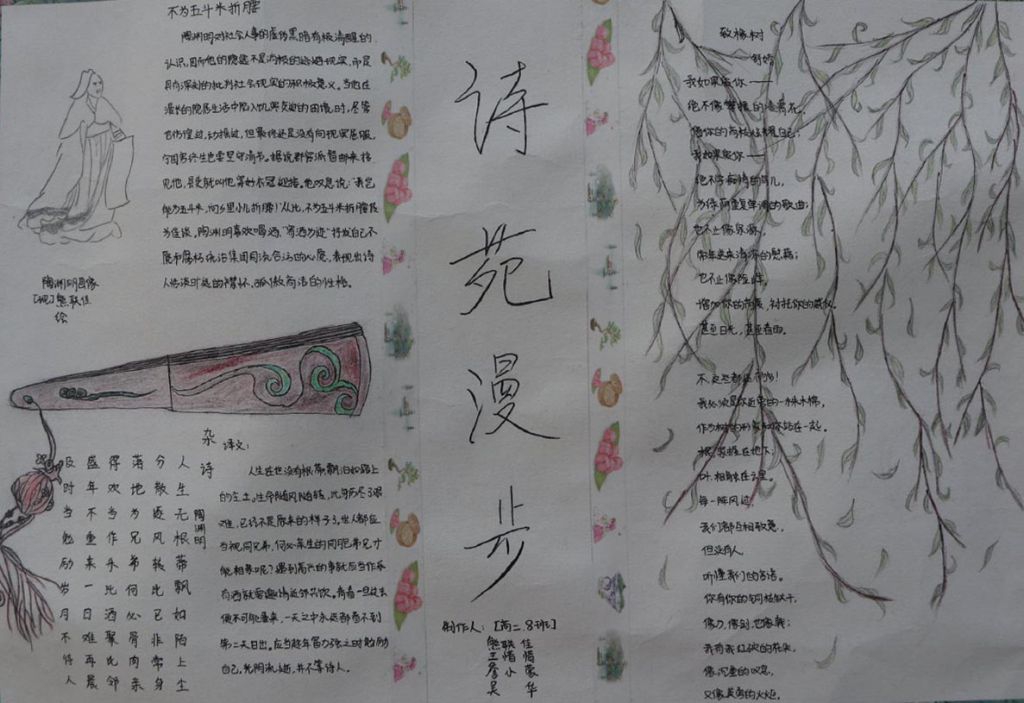 不为五斗米折腰
陶渊明对社会人事的虚伪黑暗有极清醒的
认识,因而他的隐逸不是消极的逃避现实,而是
具有深刻的批判社会现实的积极意义。当他在
漫长的隐居生活中陷入饥寒交迫的困境时,尽管
也彷徨过,动摇过,但最终还是没有向现实屈服,
宁固穷终生也要坚守清节。据说郡官派督邮来
见他,县吏就叫他穿好衣冠迎接。他叹息说:"我岂
能为五斗米,向乡里小儿折腰!"从此,不为五斗米折腰
为佳谈,陶渊明喜欢喝酒,"寄酒为迹"抒发自己不
愿和腐朽统治集团同流合污的心愿,表现出诗
人恬淡旷远的襟怀、孤傲高洁的性格。
陶渊明画像
熊联佳
绘
诗苑漫步
杂诗
陶渊明
人生无根蒂飘如陌上尘
分散逐风转此已非常身
落地为兄弟何必骨肉亲
得欢当作乐斗酒聚比邻
盛年不重来一日难再晨
及时当勉励岁月不待人
译文:
人生在世没有根蒂,飘泊如路上
的尘土。生命随风飘转,此身历尽了艰
难,已经不是原来的样子了。世人都应
当视同兄弟,何必亲生的同胞弟兄才
能相亲呢?遇到高兴的事就应当作乐,
有酒就要邀请近邻共饮。青春一旦过去
便不可能重来,一天之中永远都看不到
第二次日出。应当趁年富力强之时勉励
自己,光阴流逝,并不等待人。
制作人:【高二.8班】
熊联佳
王惜惜
詹小蒙
吴华
致橡树
舒婷
我如果爱你——
绝不像攀援的凌霄花,
借你的高枝炫耀自己;
我如果爱你——
绝不学痴情的鸟儿,
为绿荫重复单调的歌曲;
也不止像泉源,
常年送来清凉的慰藉;
也不止像险峰,
增加你的高度,衬托你的威仪。
甚至日光,甚至春雨。
不,这些都还不够!
我必须是你近旁的一株木棉,
作为树的形象和你站在一起。
根,紧握在地下;
叶,相触在云里。
每一阵风过,
我们都互相致意,
但没有人,
听懂我们的言语。
你有你的铜枝铁干,
像刀,像剑,也像戟;
我有我红硕的花朵,
像沉重的叹息,
又像英勇的火炬。